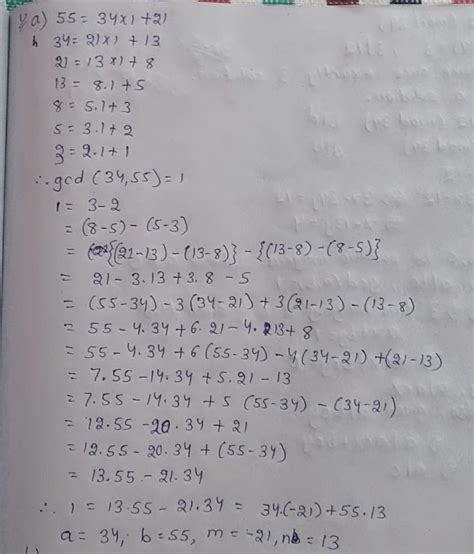 a) 55 = 34×1 + 21
34 = 21×1 + 13
21 = 13×1 + 8
13 = 8.1 + 5
8 = 5.1 + 3
5 = 3.1 + 2
3 = 2.1 + 1
∴ gcd (34,55) = 1
1 = 3-2
= (8-5) - (5-3)
= {(21-13) - (13-8)} - {(13-8) - (8-5)}
= 21 - 3.13 + 3.8 - 5
= (55-34) - 3(34-21) + 3(21-13) - (13-8)
= 55 - 4.34 + 6.21 - 4.13 + 8
= 55 - 4.34 + 6(55-34) - 4(34-21) + (21-13)
= 7.55 - 14.34 + 5.21 - 13
= 7.55 - 14.34 + 5(55-34) - (34-21)
= 12.55 - 20.34 + 21
= 12.55 - 20.34 + (55-34)
= 13.55 - 21.34
∴ 1 = 13.55 - 21.34 = 34.(-21) + 55.13
a = 34, b = 55, m = -21, n = 13